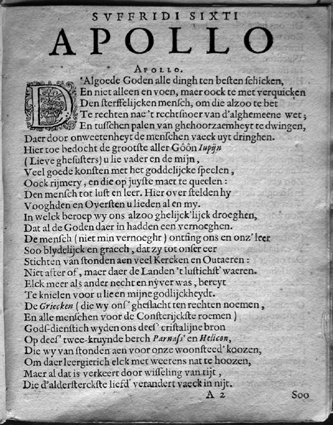 SVFFRIDI SIXTI
APOLLO
APOLLO.
D'Algoede Goden alle dingh ten besten schicken,
En niet alleen en voen, maer oock te met verquicken
Den sterffelijcken mensch, om die alzoo te bet
Te rechten nae't rechtsnoer van d'alghemeene wet;
En tusschen palen van ghehoorzaemheyt te dwingen,
Daer door onweetenheyt de menschen vaeck uyt dringhen.
Hier toe bedocht de grootste aller Goôn Iupijn
(Lieve ghesusters) u lie vader en de mijn,
Veel goede konsten met het goddelijcke speelen,
Oock rijmery, en die op juyste maet te queelen:
Den mensch tot lust en leer. Hier over stelden hy
Vooghden en Oversten u lieden al en my.
In welck beroep wy ons alzoo ghelijck'lijck droeghen,
Dat al de Goden daer in hadden een vernoeghen.
De mensch (niet min vernoeght) ontfing ons en onz' leer
Soo blydelijck en graech, dat zy tot onser eer
Stichten van stonden aen veel Kercken en Outaeren:
Niet after of, maer daer de Landen 't lustichst waeren.
Elck meer als ander necht en nyver was, bereyt
Te knielen voor u lieen mijne godlijckheydt.
De Griecken (die wy ons' gheslacht ten rechten noemen,
En alle menschen voor de Constérijckste roemen)
God-dienstich wyden ons dees' cristalijne bron
Op dees' twee-kruynde berch Parnass' en Helicon,
Die wy van stonden aen voor onze woonsteed' koozen,
Om daer leergierich elck met weetens nat te hoozen,
Maer al dat is verkeert door wisseling van rijt,
Die d'aldersterckste liefd' verandert vaeck in nijt.
A 2 Soo